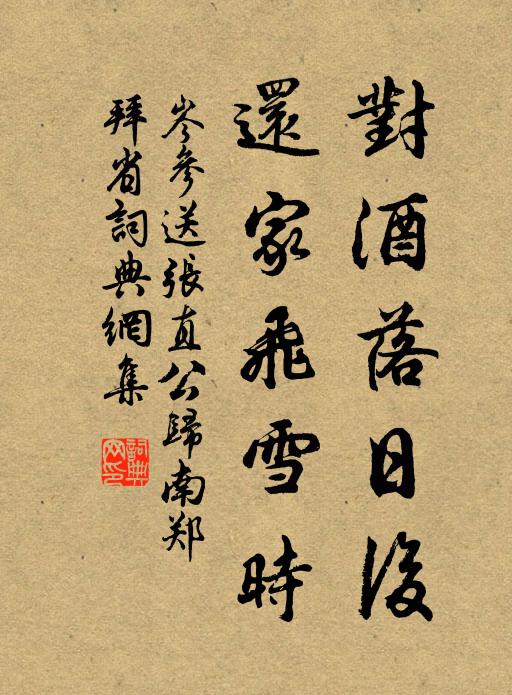 對酒落日後
還家飛雪時
岑參送張直公歸南郑
拜省詞典網集
詞典
网印